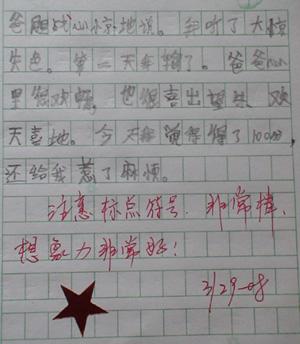 爸胆战心惊地说。听了大惊
失色。第二天了。爸爸心
里很欢畅，也很喜出望外，欢
天喜地。今天得了100分，
还给我惹了麻烦。
注意标点符号，非常棒、
想象力非常好！
3/29-08